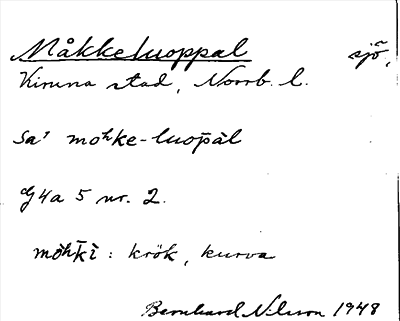 Måkkeluoppal sjö,
Kiruna stad, Norrb. l.
Sa' moʰke-luop̄àl
G4a 5 nr. 2.
mòh̄kì: krök, kurva
Bernhard Nilsson 1948